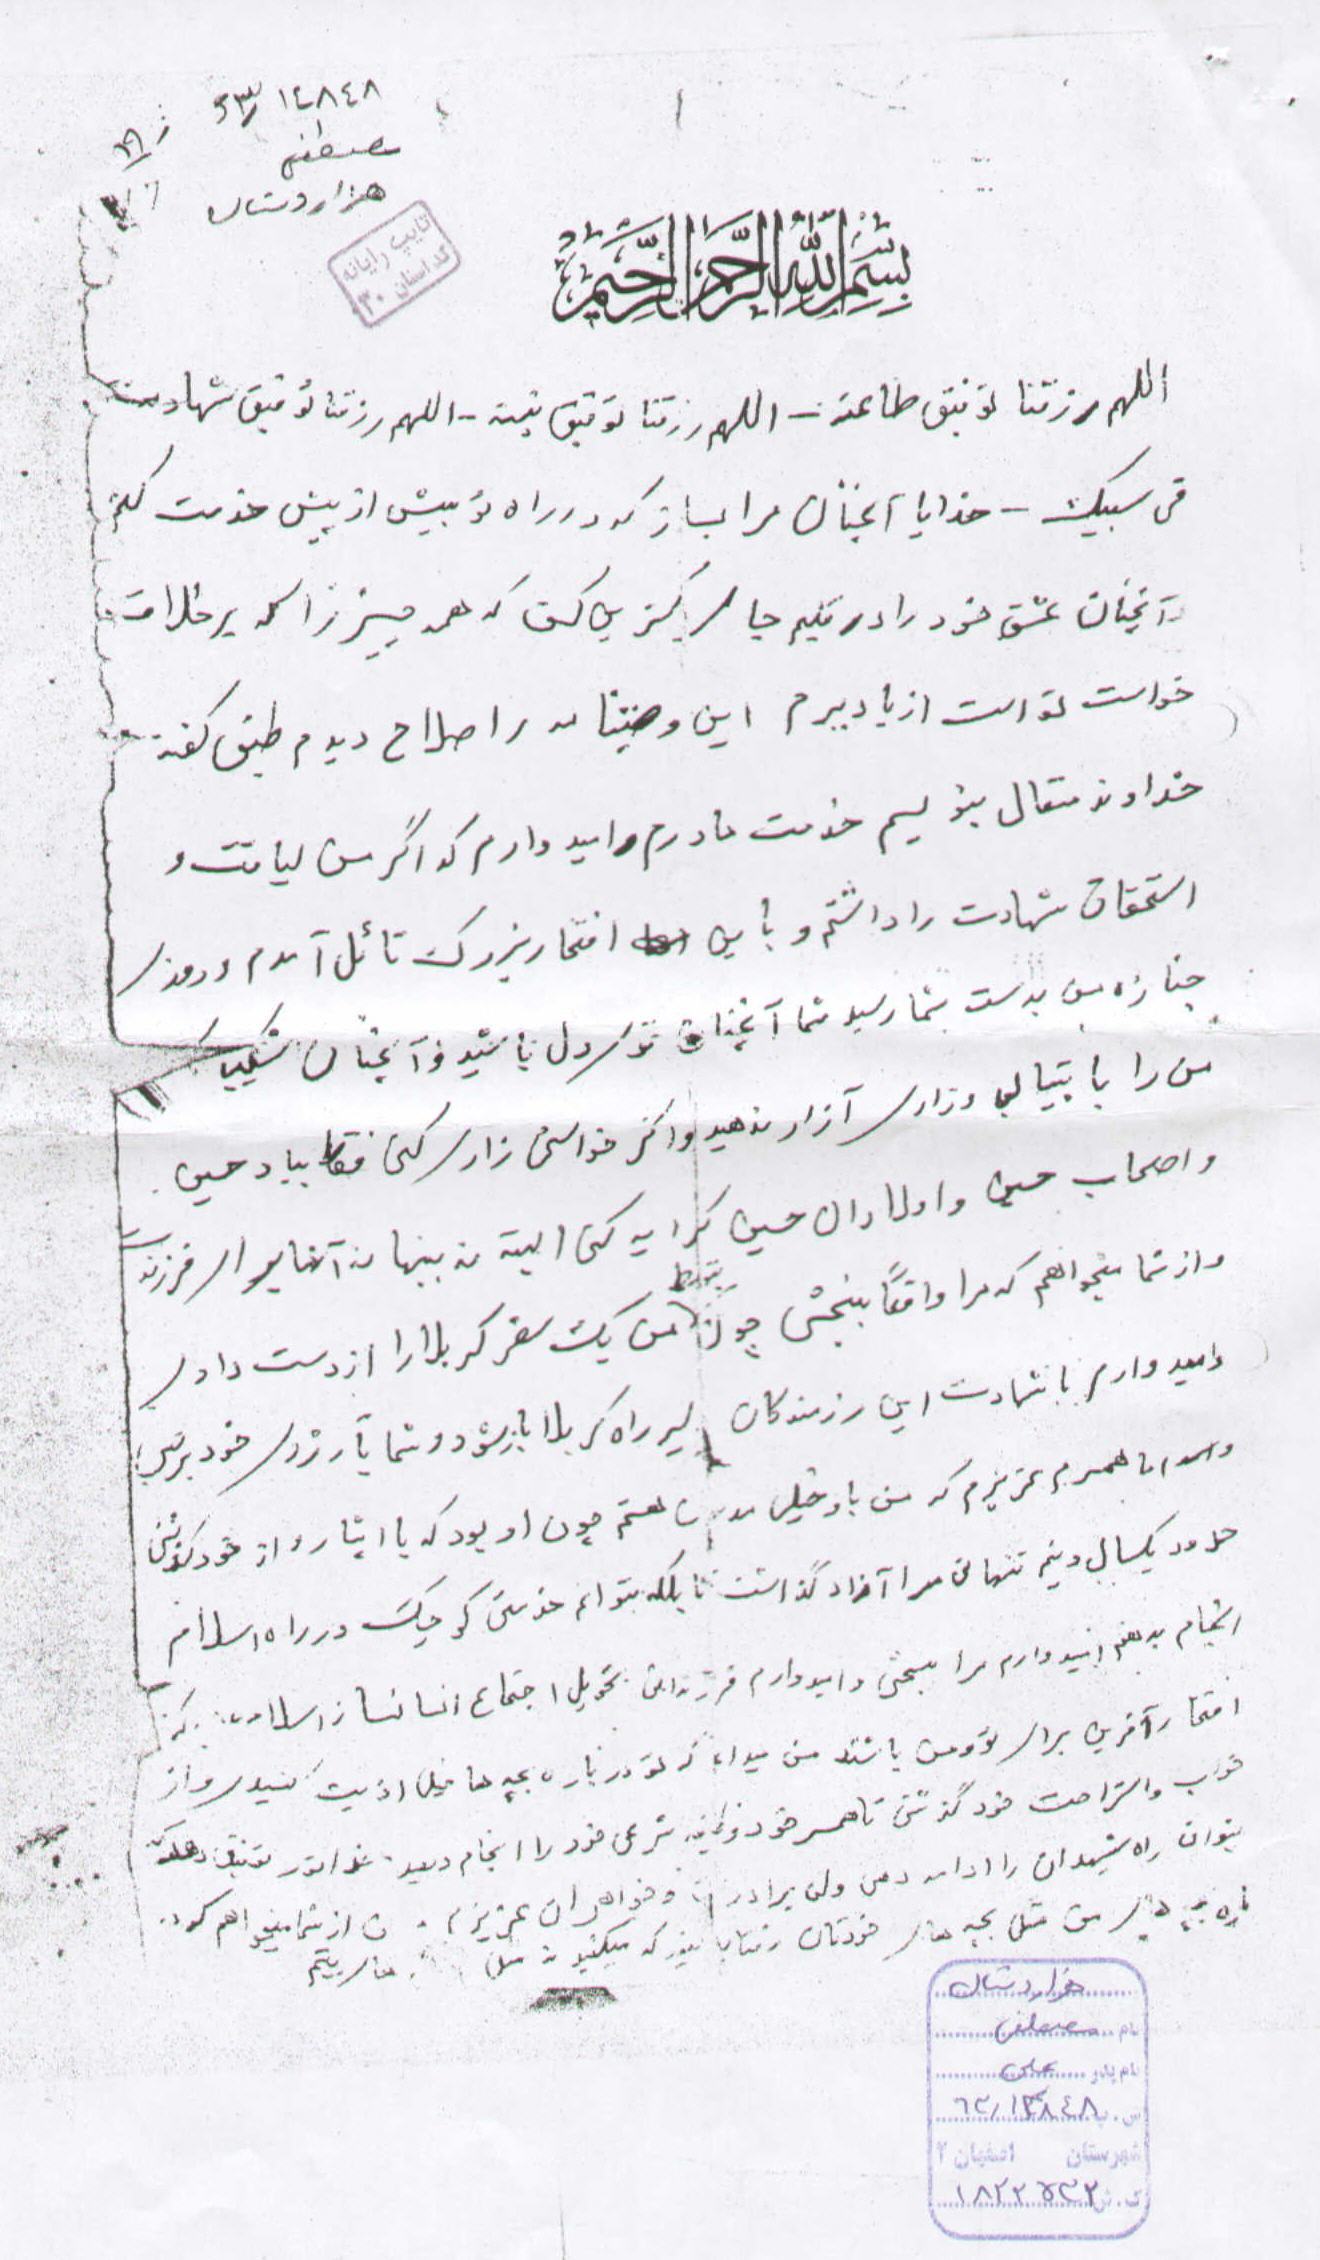 ۱٤۸٤۸
مصطفی
هزاردستان
تایپ رایانه
کد استان ۳۰
بسم الله الرحمن الرحیم
اللهم رزقنا توفیق طاعته - اللهم رزقنا توفیق - اللهم رزقنا توفیق شهادت
فی سبیلک - خدایا آنچنان مرا بساز که در راه تو بیش از پیش خدمت کنم
و آنچنان عشق خود را در قلبم جای که همه چیز را که بر خلاف
خواست تو است از یاد ببرم این وصیتنامه را صلاح دیدم طبق گفته
خداوند متعال بنویسم خدمت مادرم و امیدوارم که اگر من لیاقت و
استحقاق شهادت را داشتم و باین افتخار بزرگ نائل آمدم و روزی
جنازه من بدست شما رسید شما آنچنان دل باشید و آنچنان شکیبا که
من را با بیتابی و زاری آزار ندهید و اگر خواستی زاری کنی فقط بیاد حسین
و اصحاب حسین و اولادان حسین گریه کنی البته نه پنهان نه آشکار برای فرزندت
و از شما میخواهم که مرا واقعاً ببخشی چون بتوسط من یک سفر کربلا را از دست دادی
و امیدوارم با شهادت این رزمندگان راه کربلا باز شود و شما بآرزوی خود برسی
و همسرم عزیزم که من باو خیلی مدیون هستم چون او بود که با ایثار و از خود گذشتگی
حدود یکسال و نیم تنهائی مرا آزاد گذاشت تا بلکه بتوانم خدمتی کوچک در راه اسلام
انجام بدهم امیدوارم مرا ببخشی و امیدوارم فرزندانی تحویل اجتماع انسانساز اسلام که
افتخارآفرین برای تو و من باشند من میدانم که تو درباره بچه ها خیلی اذیت کشیدی و از
خواب و استراحت خود گذشتی تا همسر خود وظیفه شرعی خود را انجام دهد
بتوان راه شهیدان را ادامه دهی ولی برادران و خواهران عزیزم من از شما میخواهم که در
باره بچه های من مثل بچه های خودتان رفتار کنید که میکنید نه مثل بچه های یتیم
هزاردستان
نام مصطفی
نام پدر علی
س.پ ۶۲/۱٤۸٤۸
شهرستان اصفهان ۲
ک.ش ۱۸۲۲۷۳۲